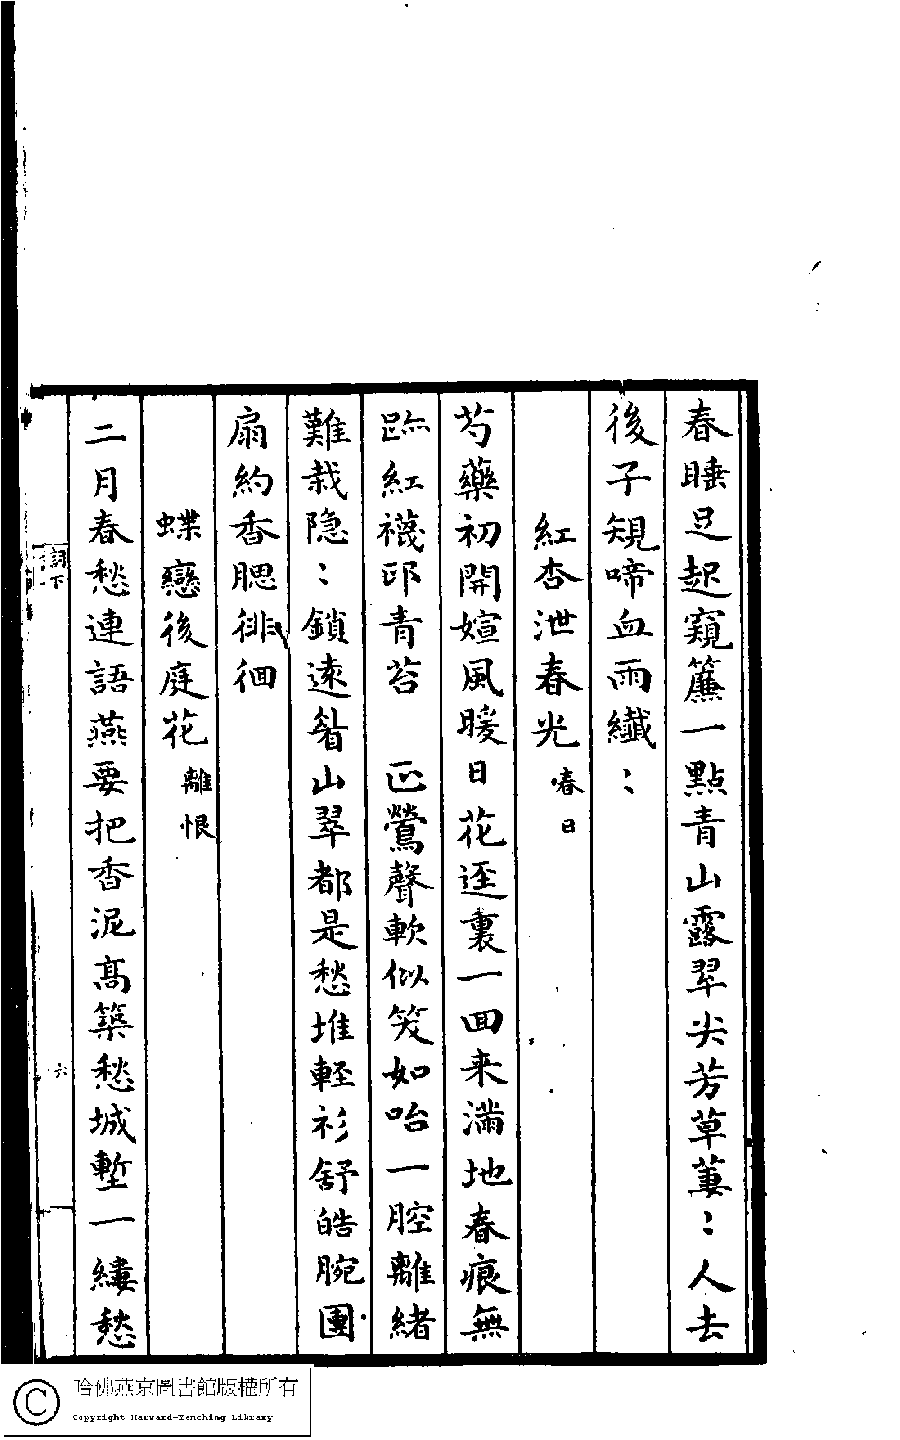 春睡足起窺簾一點青山露翠尖芳草萋：人去
後子規啼血雨纖：
紅杏泄春光 春日
芍藥初開媗風暖日花逕裏一回来滿地春痕無
跡紅襪印青苔　正鶯聲軟似笑如咍一腔離緒
難栽隐：鎖遠眉山翠都是愁堆輕衫舒皓腕團
扇約香腮徘徊
蝶戀後庭花 離恨
二月春愁連語燕要把香泥高築愁城塹一縷愁
詞下
六
哈佛燕京圖書館版權所有
Copyright Harvard-Yenching Library